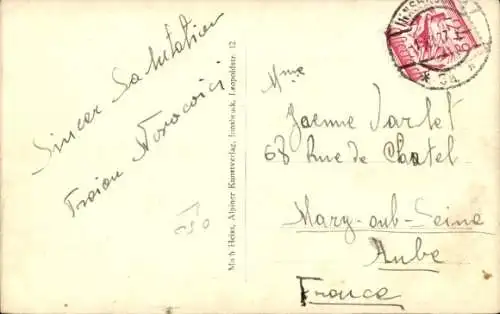 Sincer Salutation
Traian Novacovici
Math Heiss, Alpiner Kunstverlag, Innsbruck, Leopoldstr. 12
Mme
Jaenne Jarlet
68 Rue de Chatel
Mary-sub-Seine
Aube
France